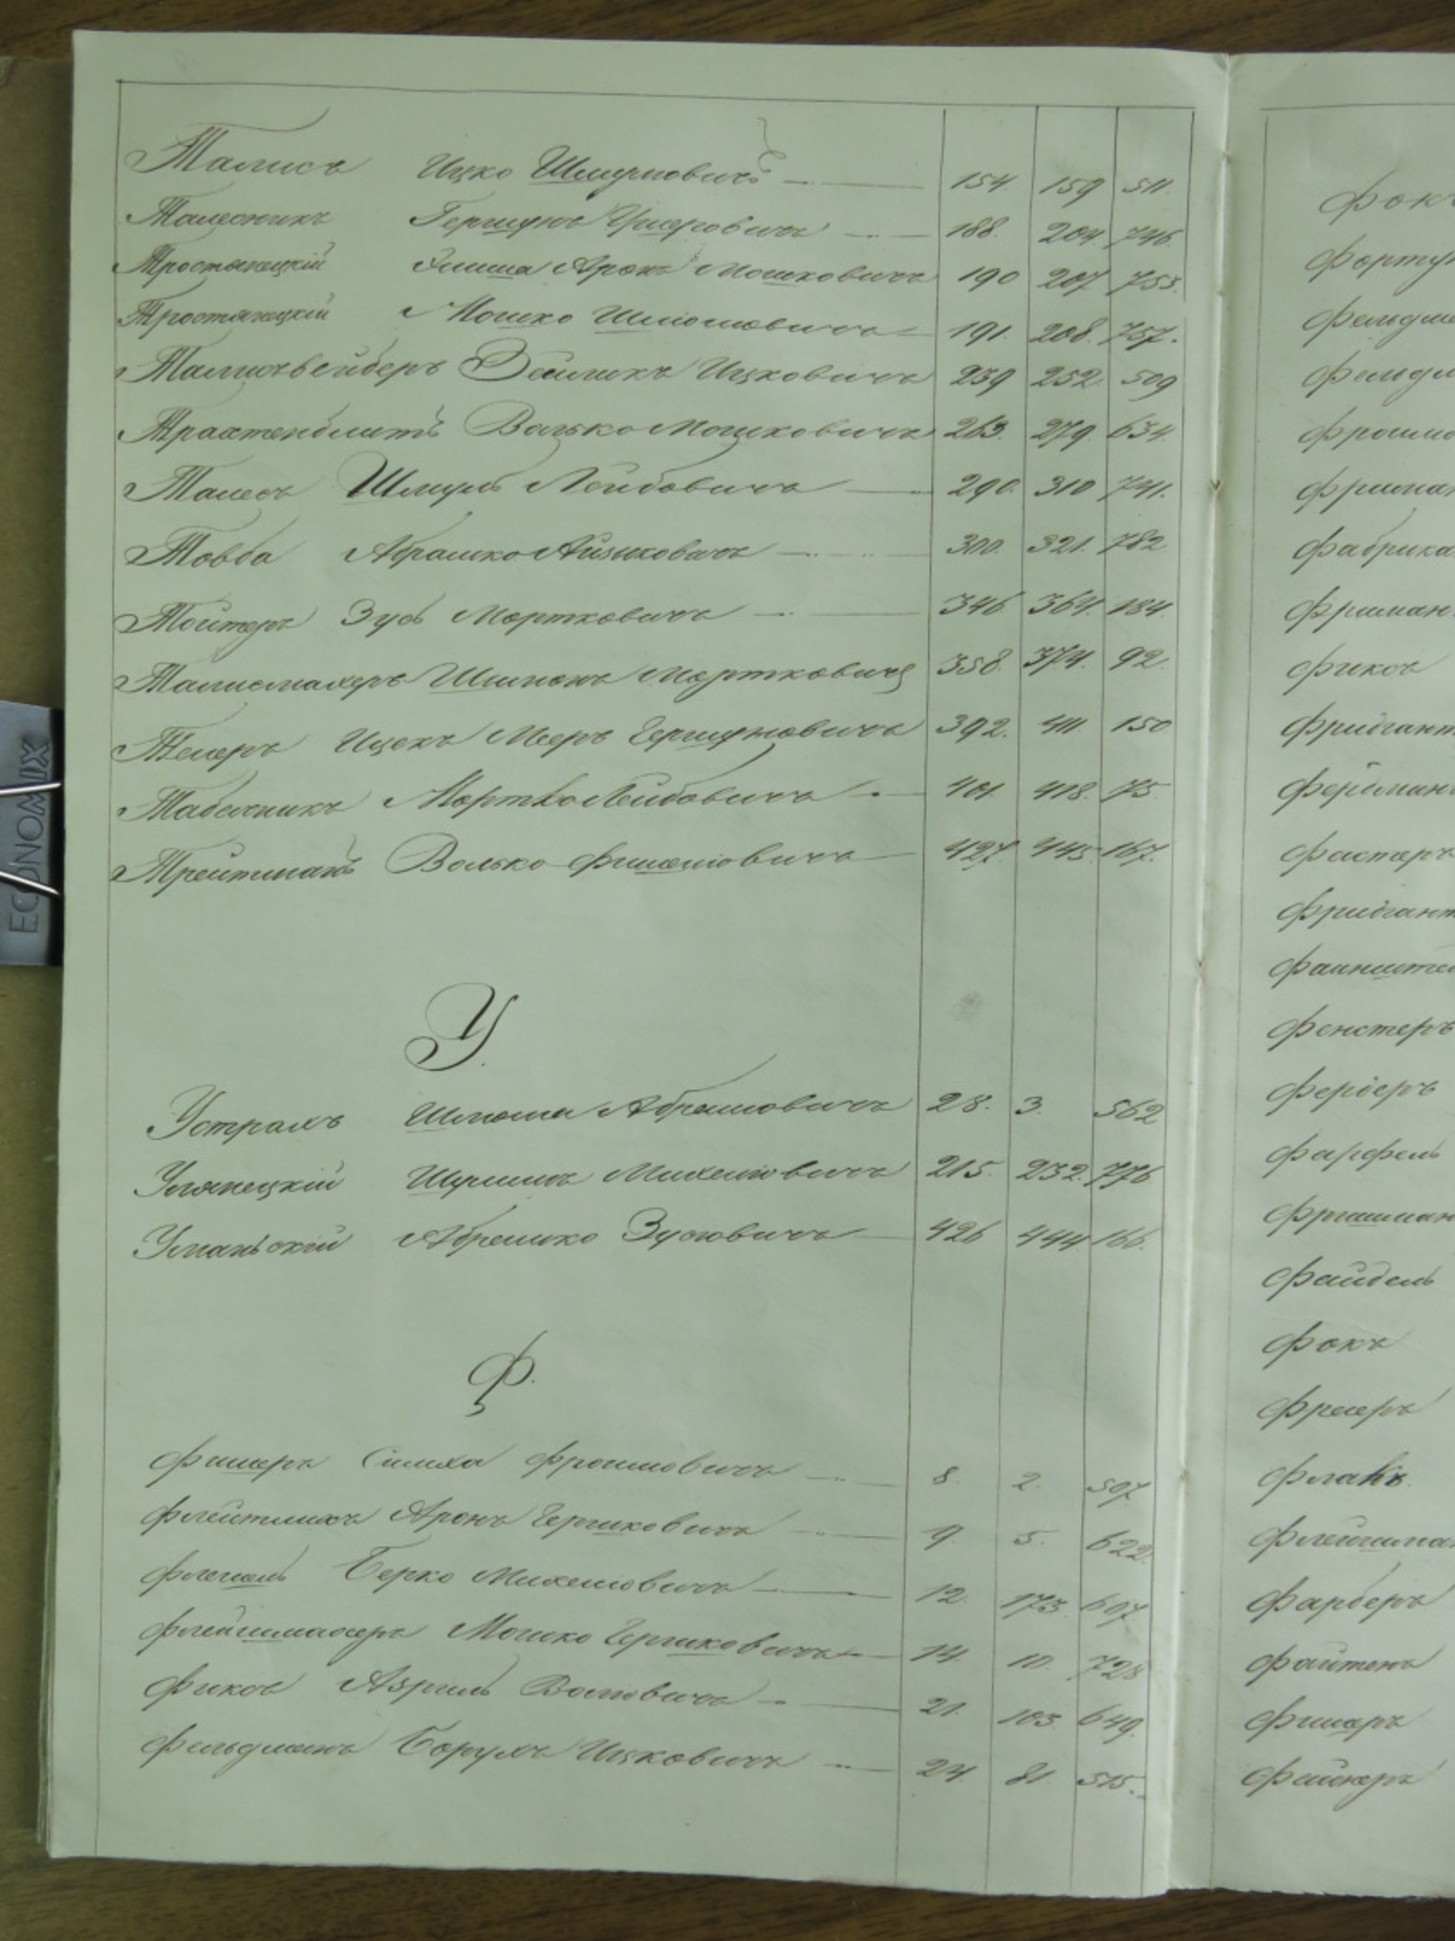 Талисъ Ицко Шмулювичъ 154 159 511.
Талесникъ Гершунъ Ушеровичъ 188. 204 746
Тростянецкій Элиша Аронъ Мошковичъ 190 207 753
Тростянецкій Мошко Шлиомовичъ 191. 208. 757.
Талисвейберъ Зейликъ Ицковичъ 239 252 509
Траатенблитъ Волько Мошковичъ 263. 279. 634.
Талесъ Шмуль Лейбовичъ 290. 310 741.
Товба Абрашко Айзиковичъ 300. 321. 782
Тойтеръ Зусь Мортковичъ 346 364. 184.
Талисмахеръ Шимонъ Мортковичъ 358. 374. 92.
Телеръ Ицекъ Мееръ Гершуновичъ 392. 411. 150
Табачникъ Мортко Лейбовичъ 401. 418. 75
Трейтманъ Волько Фишелiовичъ 427. 445. 167.
У.
Устрахъ Шлиома Абрамовичъ 28. 3. 562
Улянецкій Шулимъ Михелiовичъ 215. 232. 776
Уманьскій Абрашко Зусiовичъ 426 444 166.
Ф.
Фишеръ Симха Фроимовичъ 8. 2. 507
Флейтлихъ Аронъ Гершковичъ 9. 5. 622.
Флешель Берко Михелiовичъ 12. 173. 607.
Флейшмахеръ Мошко Гершковичъ 14. 10. 728
Фиксъ Азриль Волiовичъ 21. 103. 649.
Фельдманъ Борухъ Ицковичъ 24. 81. 515.
Фокъ
Форту
Фельдм
Фельдм
Фроимо
Фришма
Фабрика
Фришман
Фиксъ
Фридгант
Фердман
Фастеръ
Фридгант
Файнште
Фенстеръ
Ферберъ
Фарфель
Фришман
Файдель
Фокъ
Фрееръ
Флакъ
Флейшма
Фарберъ
Файтенъ
Фишеръ
Фейнеръ
ECONOMIX